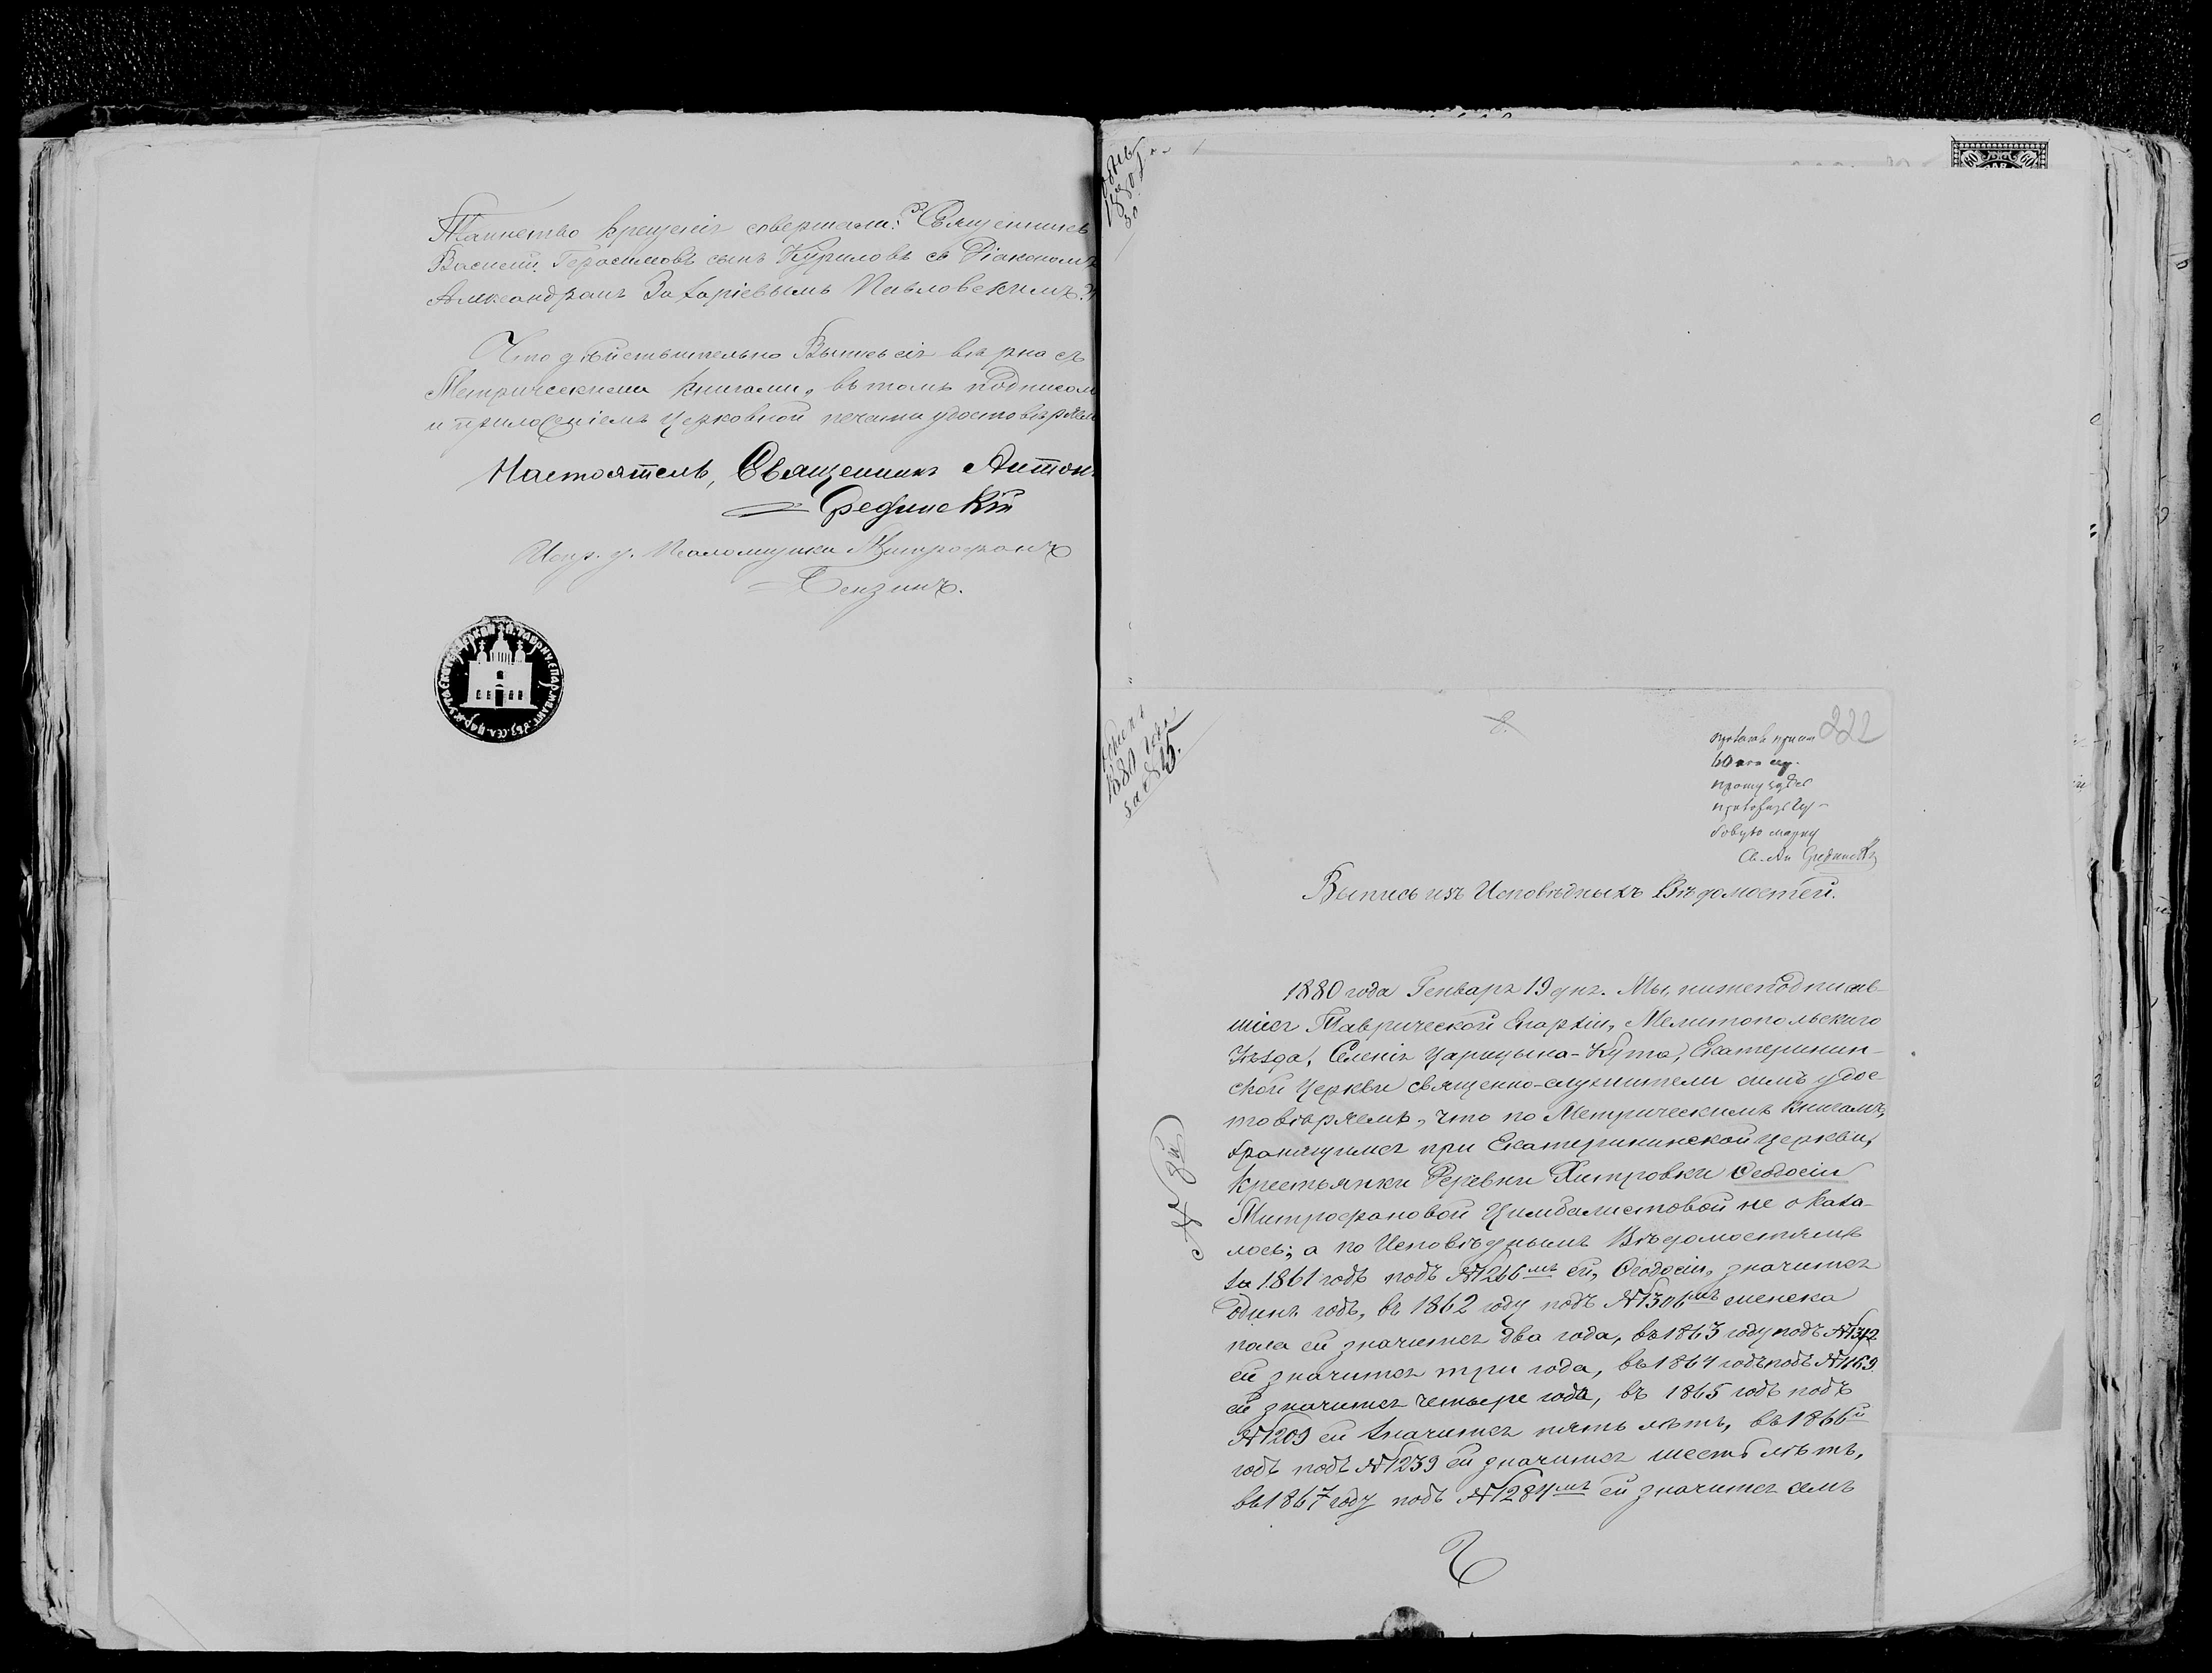 Таинство крещенія совершали: Священникъ
Василій Герасимовъ сынъ Куриловъ съ Діакономъ
Александромъ Захаріевымъ Павловскимъ.
Что дѣйствительно Выпись сія вѣрна съ
Метрическими книгами, въ томъ подписомъ
и приложеніемъ Церковной печати удостовѣряемъ
Настоятель, Священникъ Антонъ
Срединскій
Испр. д. Псаломщика Митрофанъ
1880
30
1880 года
за № 15.
8.
222
60
прошу
бовую марку
Св. Ан Срединскій
Выпись изъ Исповѣдныхъ Вѣдомостей.
1880 года Генваря 19 дня. Мы, нижеподписав-
шіеся Таврической Епархіи, Мелитопольскаго
Уѣзда, Селенія Царицына-Кута, Екатеринин-
ской Церкви священно-служители симъ удос-
товѣряемъ, что по Метрическимъ Книгамъ,
хранящимся при Екатерининской церкви,
крестьянки Деревни Хитровки Ѳеодосіи
Митрофановой Цимбалистовой не оказа-
лось; а по Исповѣднымъ Вѣдомостямъ
за 1861 годъ подъ №1266мъ ей, Ѳеодосіи, значится
одинъ годъ, въ 1862 году подъ №1306мъ женска
пола ей значится два года, въ 1863 году подъ №1312
ей значится три года, въ 1864 годъ подъ №1169
ей значится четыре года, въ 1865 годъ подъ
№1209 ей значится пять лѣтъ, въ 1866й
годъ подъ №1239 ей значится шесть лѣтъ,
въ 1867 году подъ №1284мъ ей значится семь